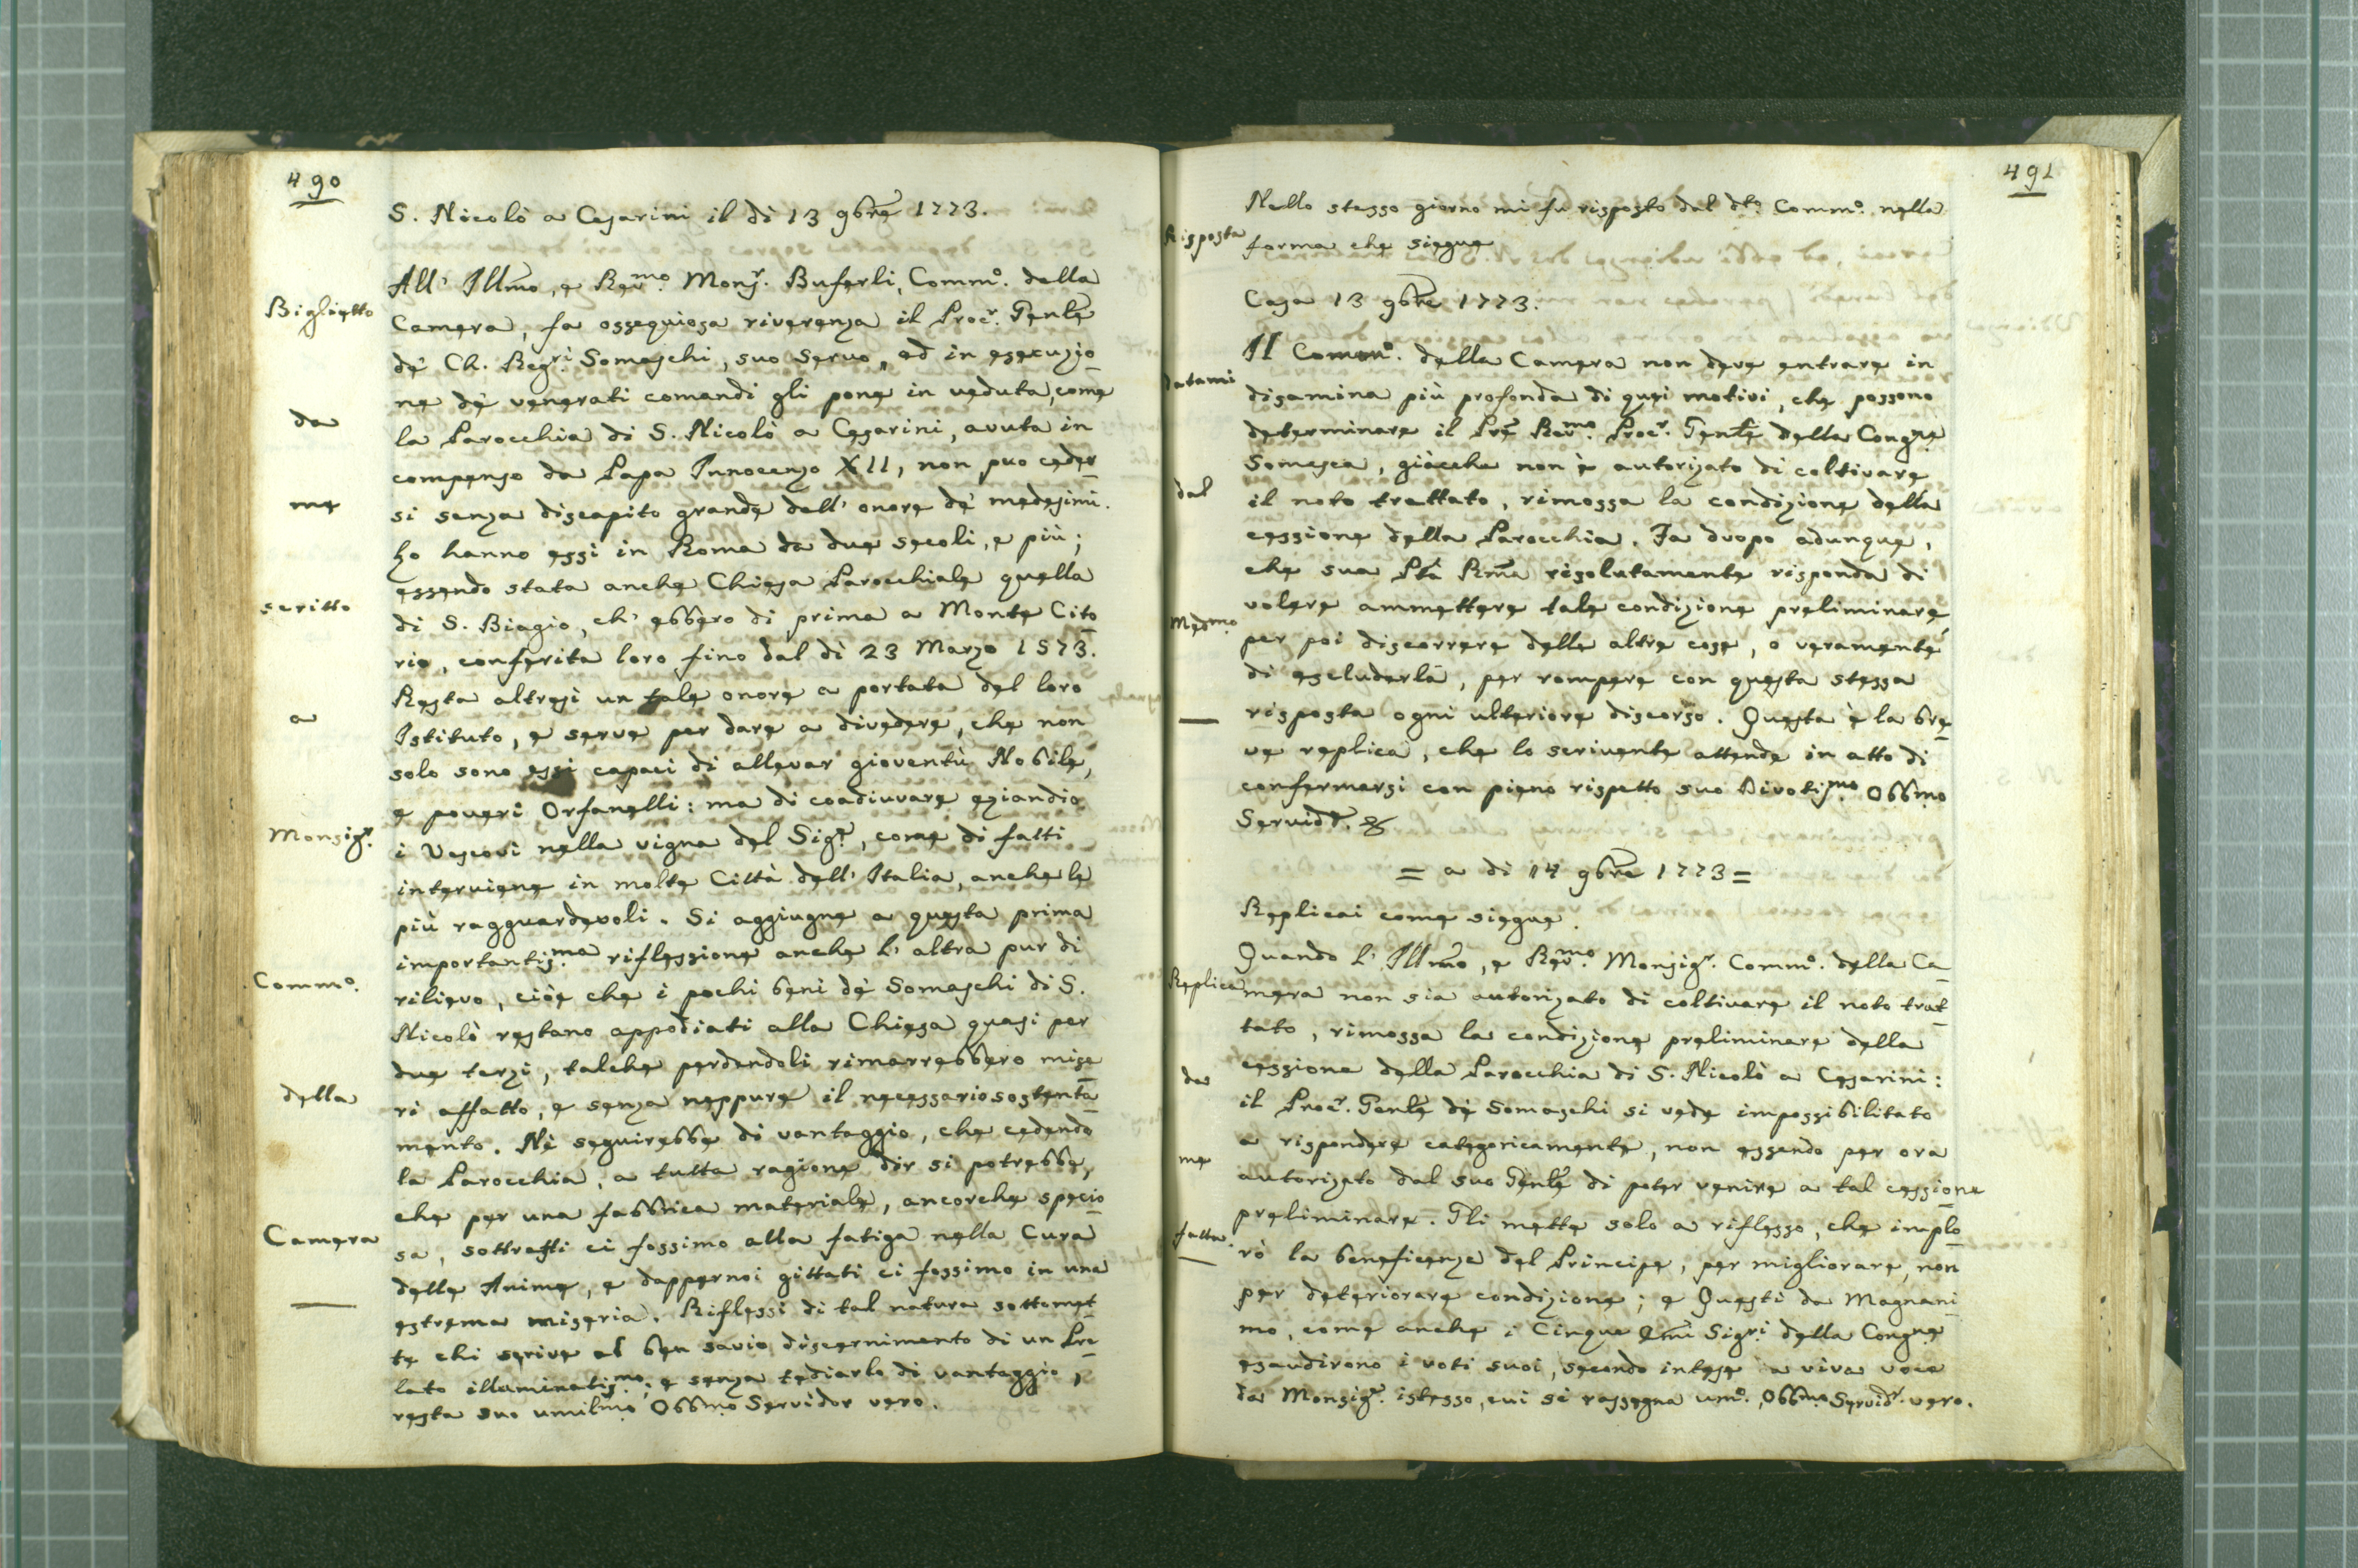 490
S. Nicolò a Cesarini il dì 13 9bre 1773.
Biglietto da me scritto a Monsigr. Commo. della Camera
All' Illmo, e Revmo. Monsr. Buferli, Commo. della
Camera, fa ossequiosa riverenza il Procr. Genle
de' Ch. Regri. Somaschi, suo servo, ed in esecuzio
ne de' venerati comandi gli pone in veduta, come
la Parocchia di S. Nicolò a Cesarini, avuta in
compenso da Papa Innocenzo XII, non puo ceder
si senza discapito grande dell' onore de' medesimi.
Lo hanno essi in Roma da due secoli, e più;
essendo stata anche Chiesa Parocchiale quella
di S. Biagio, ch' ebbero di prima a Monte Cito
rio, conferita loro fino dal dì 23 Marzo 1573.
Resta altresì un tale onore a portata del loro
Istituto, e serve per dare a divedere, che non
solo sono essi capaci di allevar gioventù Nobile,
e poveri Orfanelli: ma di coadiuvare eziandio
i Vescovi nella vigna del Sigre, come di fatti
interviene in molte Città dell' Italia, anche le
più ragguardevoli. Si aggiugne a questa prima
importantisma. riflessione anche l' altra pur di
rilievo, cióe che i pochi beni de' Somaschi di S.
Nicolò restano appodiati alla Chiesa quasi per
due terzi, talche perdendoli rimarrebbero mise
ri affatto, e senza neppure il necessario sostenta
mento. Nè seguirebbe di vantaggio, che cedendo
la Parocchia, a tutta ragione dir si potrebbe,
che per una fabbrica materiale, ancorche specio
sa, sottratti ci fossimo alla fatiga nella Cura
delle Anime, e dappernoi gittati ci fossimo in una
estrema miseria. Riflessi di tal natura sottomet
te chi scrive al ben savio discernimento di un Pre
lato illuminatismo.; e senza tediarlo di vantaggio,
resta suo umilmo Obbmo Servidor vero.
491
Risposta datami dal medmo.
Nello stesso giorno mi fu risposto dal dto. Commo. nella
forma che siegue
Casa 13 9bre 1773.
Il Commo. della Camera non deve entrare in
disamina più profonda di quei motivi, che possono
determinare il Pre Revmo. Procr. Genle della Congne
Somasca, giacche non è autorizato di coltivare
il noto trattato, rimossa la condizione della
cessione della Parocchia. Fa duopo adunque,
che sua Ptà Rma risolutamente risponda di
volere ammettere tale condizione preliminare,
per poi discorrere delle altre cose, o veramente
di escluderla, per rompere con questa stessa
risposta ogni ulteriore discorso. Questa è la bre
ve replica, che lo scrivente attende in atto di
confermarsi con pieno rispetto suo Divotismo. Obbmo
Servidre. &
= a di 14 9bre 1773 =
Replicai come siegue.
Replica da me fatta.
Quando l' Illmo, e Revmo. Monsigr. Commo. della Ca
mera non sia autorizato di coltivare il noto trat
tato, rimossa la condizione preliminare della
cessione della Parocchia di S. Nicolò a Cesarini:
il Procr. Genle de' Somaschi si vede impossibilitato
a rispondere categoricamente, non essendo per ora
autorizato dal suo Genle di poter venire a tal cessione
preliminare. Gli mette solo a riflesso, che implo
rò la beneficenza del Principe, per migliorare, non
per deteriorare condizione; e Questi da Magnani
mo, come anche i Cinque Emi Sigri della Congne
esaudirono i voti suoi, secondo intese a viva voce
da Monsigr. istesso, cui si rassegna umo. Obbmo Servidr. vero.